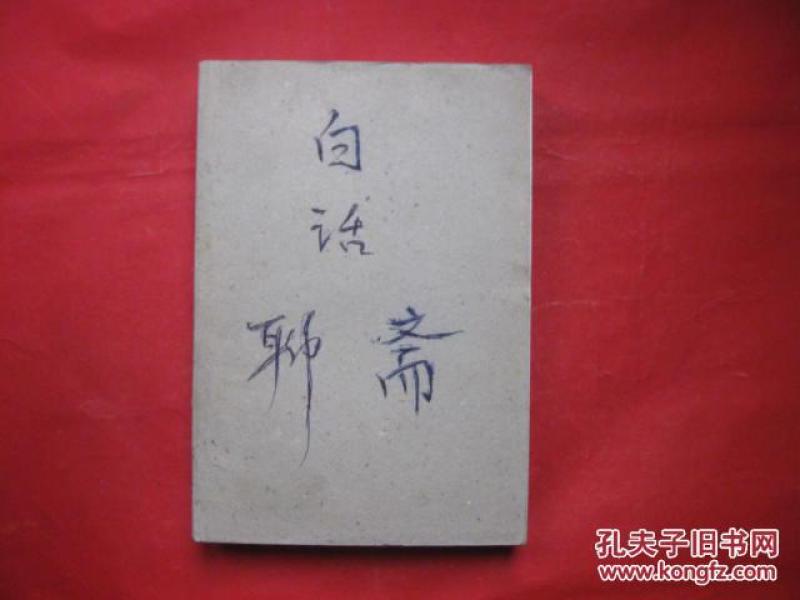 白
话
聊斋
孔夫子旧书网
www.kongfz.com